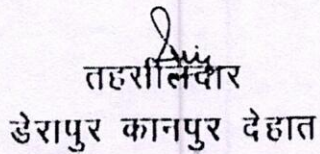 तहसीलदार
डेरापुर कानपुर देहात